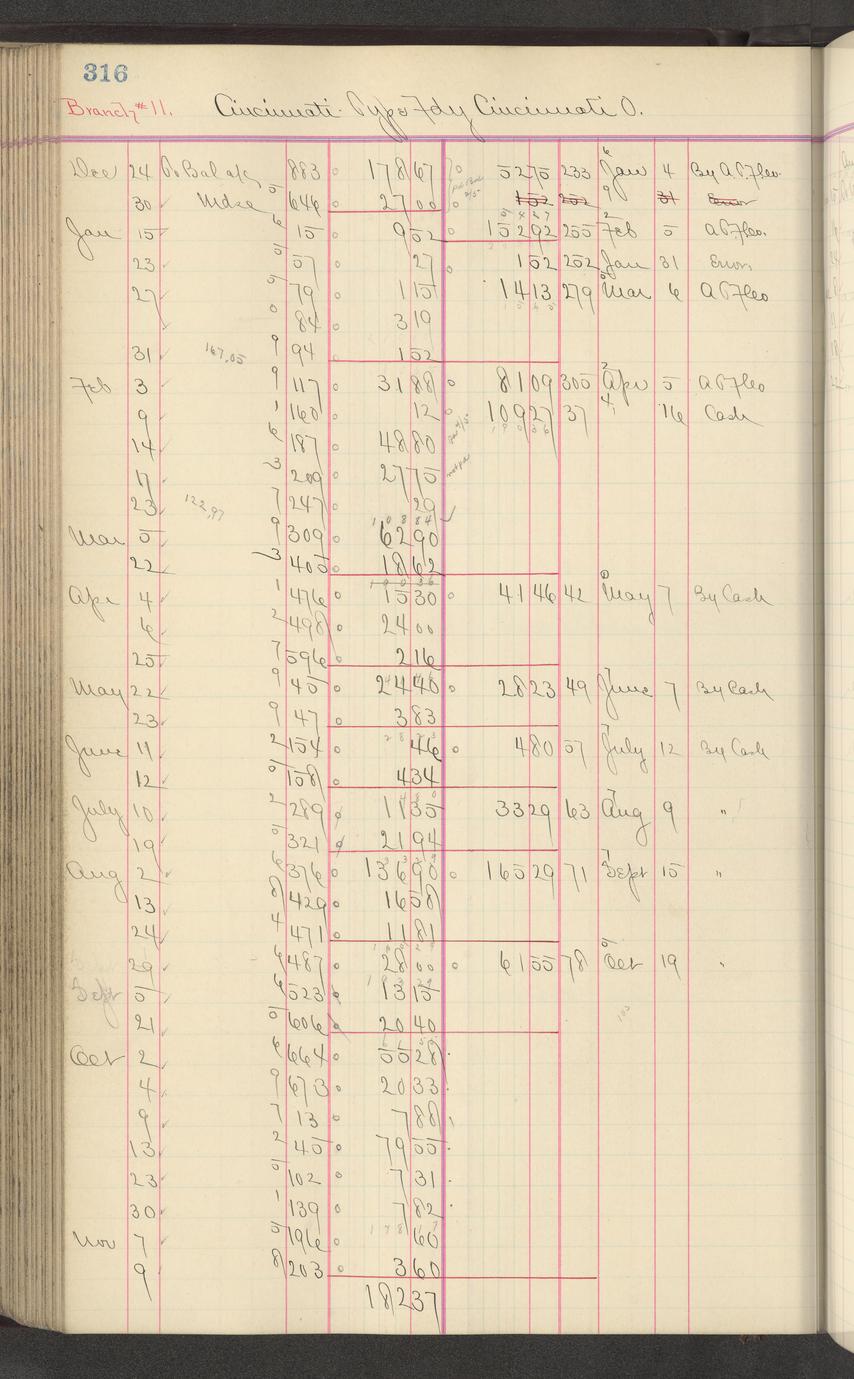 316
Branch #11. Cincinnati Typo Fdy Cincinnati O.
Dec 24 To Bal a/c 883 178 67 52 75 233 Jan 4 By A T F Co
30 Mdse 5 646 27 00 1 52 252 9 31 Error
Jan 15 6 15 9 52 152 92 255 Feb 5 A T F Co.
23 5 57 27 1 52 252 Jan 31 Error
27 5 79 1 15 14 13 279 Mar 6 A T F Co
0 84 3 19
31 167.05 9 94 1 52
Feb 3 9 117 31 88 81 09 305 Apr 5 A T F Co
9 1 160 12 109 27 37 4 16 Cash
14 6 187 48 80
17 3 209 27 75
23 122.97 7 247 29
Mar 5 9 309 62 90
22 3 405 18 62
Apr 4 1 476 15 30 41 46 42 May 7 By Cash
6 2 498 24 00
25 7 596 2 16
May 22 9 45 24 40 28 23 49 June 7 By Cash
23 9 47 3 83
June 11 2 154 46 4 80 57 July 12 By Cash
12 5 158 4 34
July 10 2 289 11 35 33 29 63 Aug 9 "
19 5 321 21 94
Aug 2 6 376 136 90 165 29 71 Sept 15 "
13 8 429 16 58
24 4 471 11 81
29 6 487 28 00 61 55 78 Oct 19 "
Sept 5 6 523 13 15
21 5 606 20 40
Oct 2 6 664 55 28
4 9 673 20 33
9 7 13 7 88
13 2 45 79 55
23 5 102 7 31
30 1 139 7 82
Nov 7 5 196 60
9 8 203 3 60
182 37